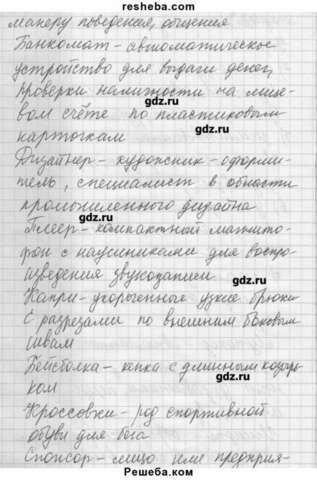 resheba.com
манеру поведения, общения
Банкомат – автоматическое
устройство для выдачи денег,
проверки наличности на лице-
gdz.ru
вом счёте по пластиковым
карточкам
gdz.ru
Дизайнер – художник – оформи-
тель, специалист в области
промышленного дизайна
gdz.ru
Плеер – компактный магнито-
фон с наушниками для воспро
изведения звукозаписи
gdz.ru
Капри – укороченные узкие брюки
с разрезами по внешним боковым
швам
Бейсболка – кепка с длинным козырь
gdz.ru
ком
Кроссовки – род спортивной
обуви для бега
gdz.ru
Спонсор – лицо или предприя-
Resheba.me